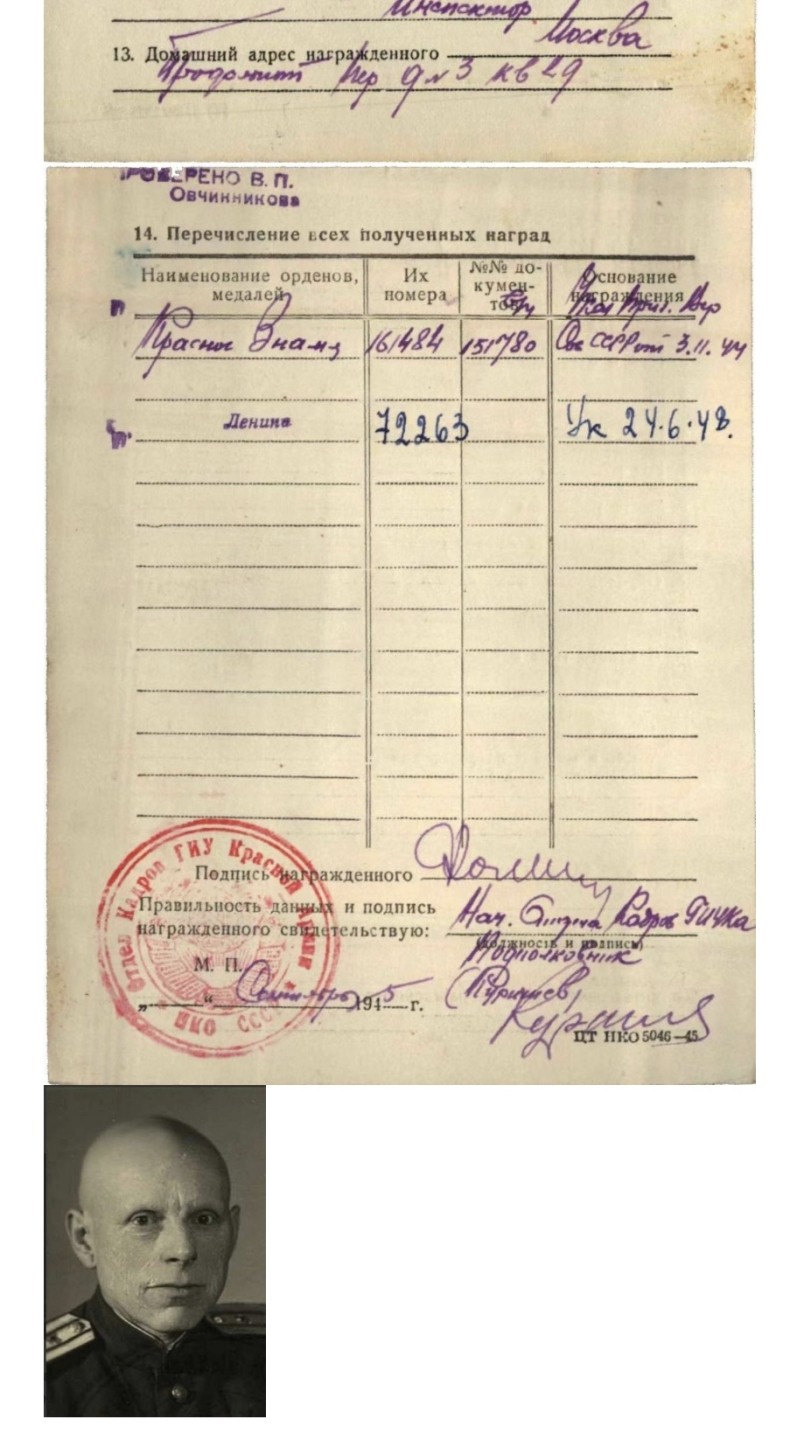 Инспектор
13. Домашний адрес награжденного Москва
пер д № 3 кв 29
ПРОВЕРЕНО В. П.
Овчинникова
14. Перечисление всех полученных наград
Наименование орденов, медалей
Их номера
№№ документов
Основание награждения
Указ През. Вер
Красное Знамя 161484 151780 Сов СССР от 3.11.44
Ленина 72263 Ук 24.6.48.
Подпись награжденного
Правильность данных и подпись Нач. Отдела Кадров ГИУКА
награжденного свидетельствую:
(должность и подпись)
Подполковник
М. П.
„ “ Сентябрь 1945 г.
ЦТ НКО 5046—45
Отдел Кадров ГИУ Красной Армии
НКО СССР